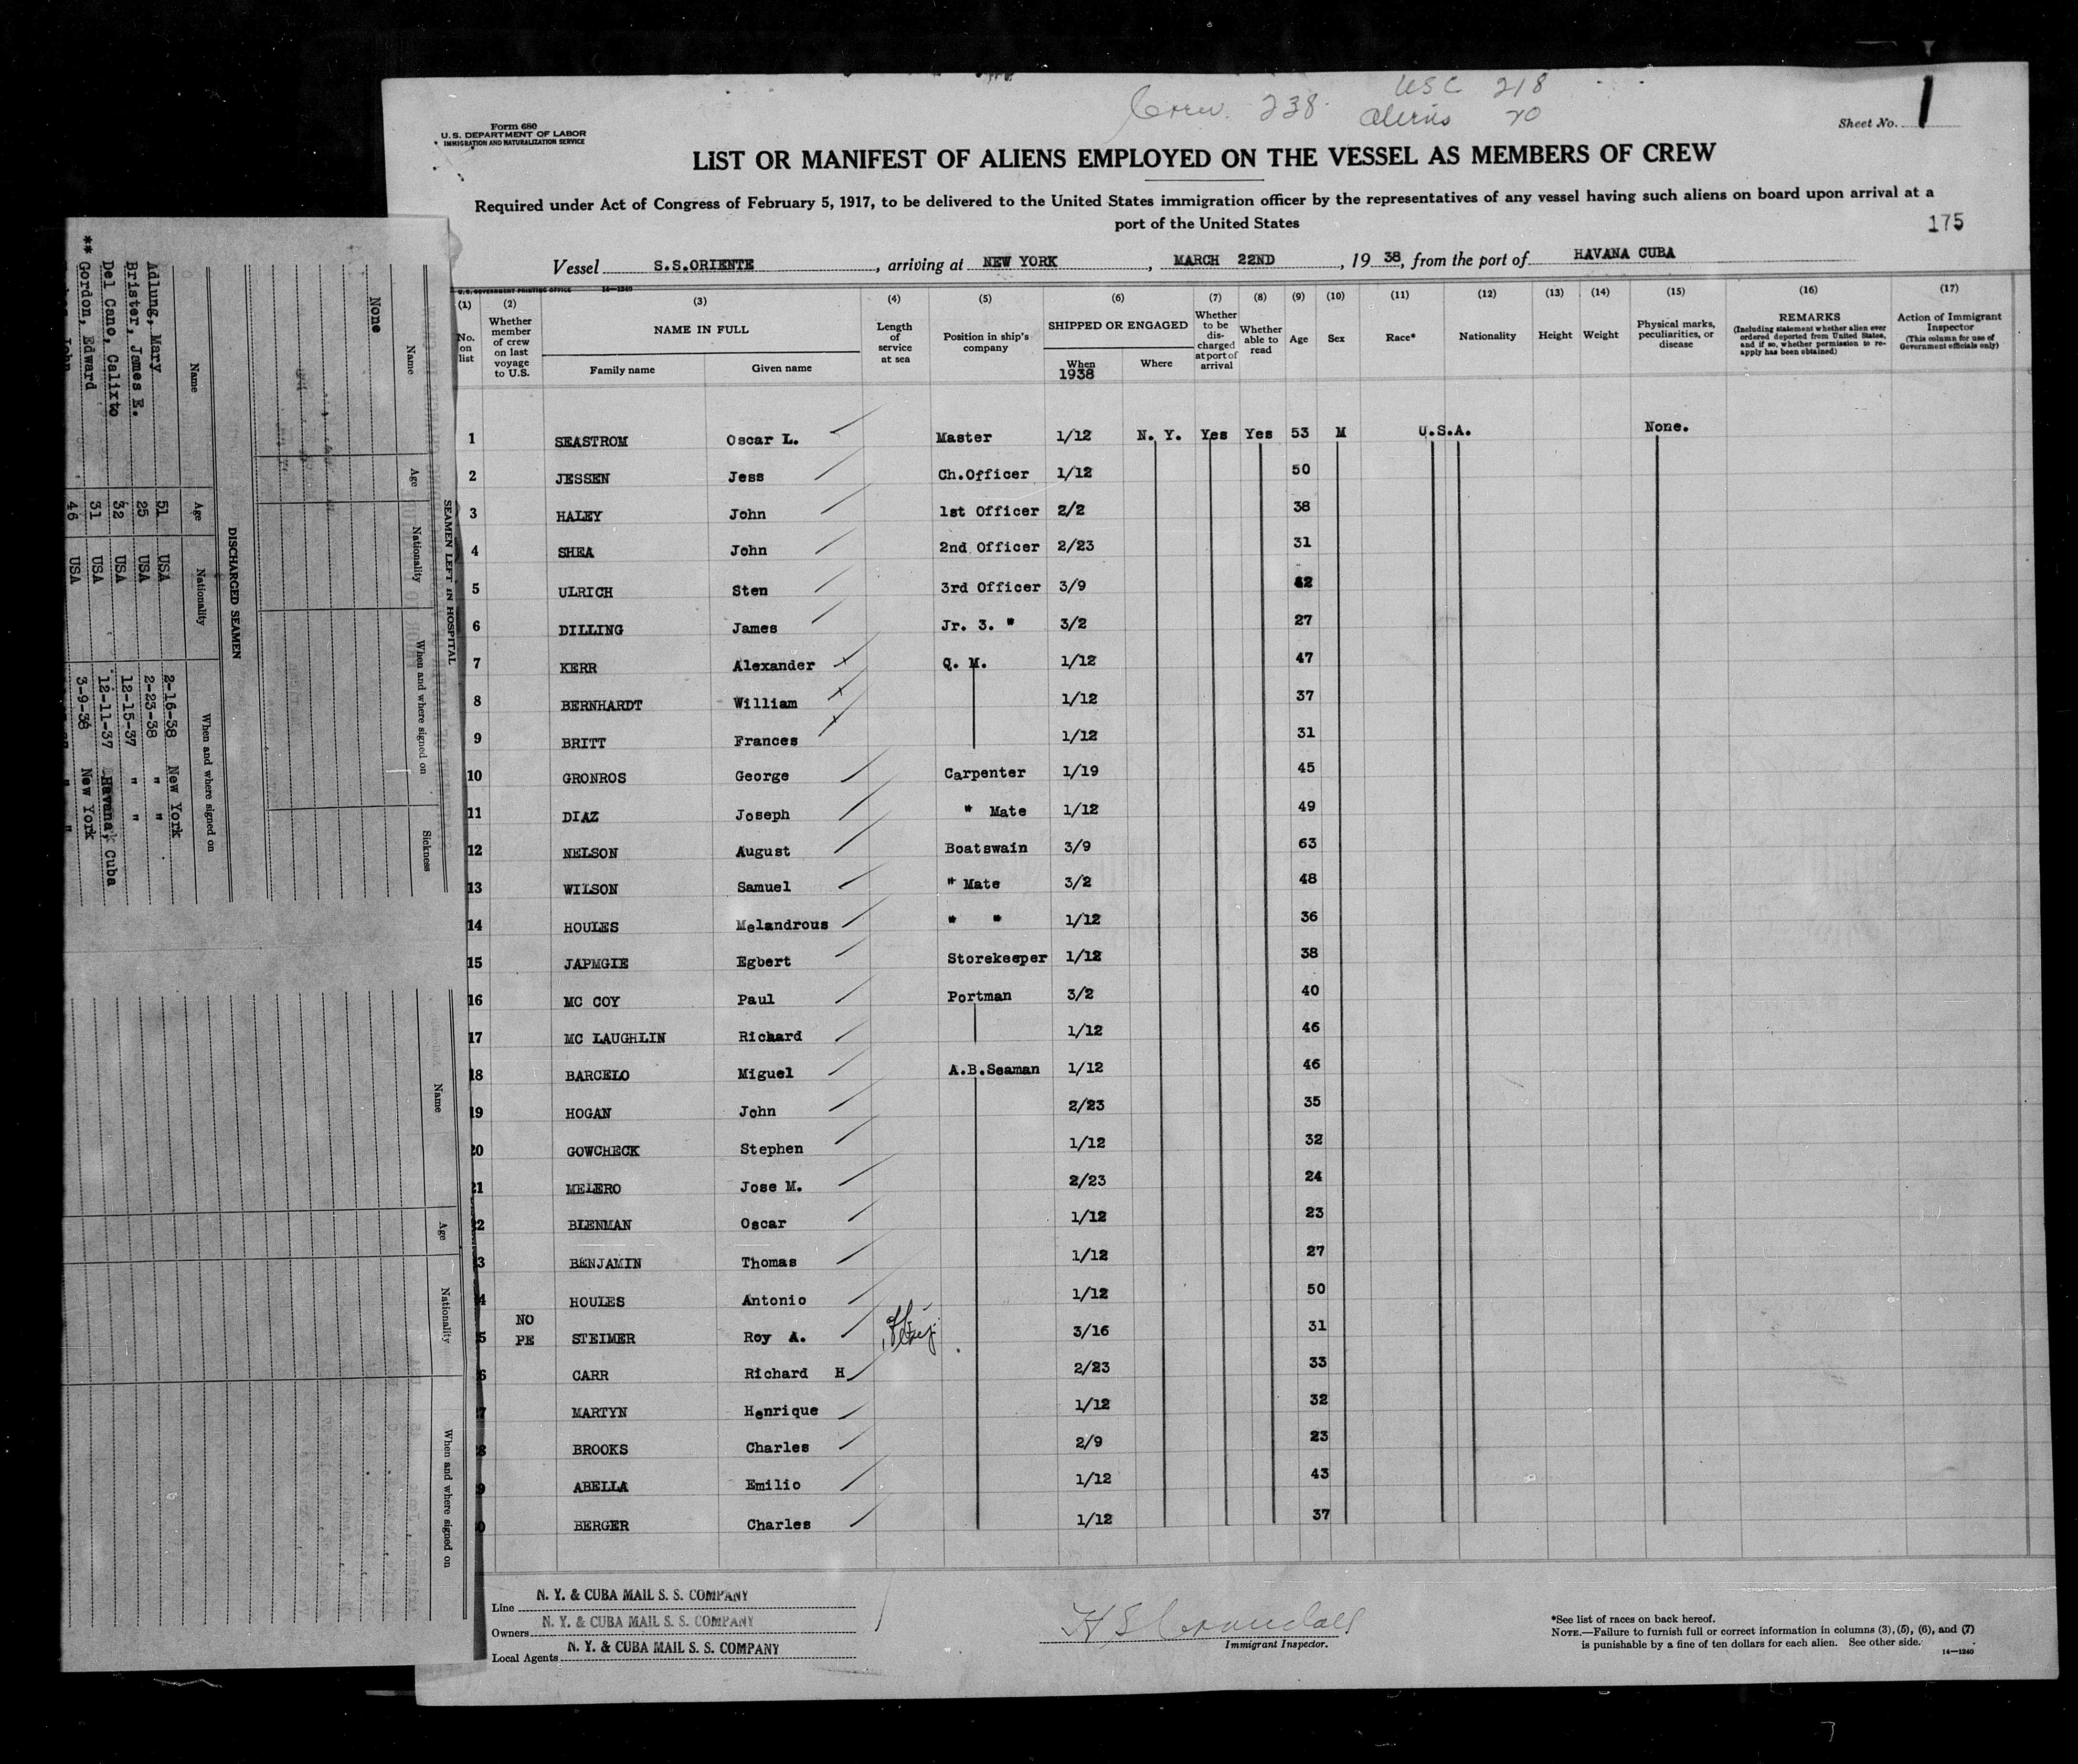 Crew. 238. USC 218
Aliens 20
Form 680
U.S. DEPARTMENT OF LABOR
IMMIGRATION AND NATURALIZATION SERVICE
Sheet No. 1
LIST OR MANIFEST OF ALIENS EMPLOYED ON THE VESSEL AS MEMBERS OF CREW
Required under Act of Congress of February 5, 1917, to be delivered to the United States immigration officer by the representatives of any vessel having such aliens on board upon arrival at a
port of the United States
175
Vessel S.S.ORIENTE, arriving at NEW YORK, MARCH 22ND, 1938, from the port of HAVANA CUBA
U.S. GOVERNMENT PRINTING OFFICE 14—1240
(1) (2) (3) (4) (5) (6) (7) (8) (9) (10) (11) (12) (13) (14) (15) (16) (17)
No. on list
Whether member of crew on last voyage to U.S.
NAME IN FULL
Family name Given name
Length of service at sea
Position in ship's company
SHIPPED OR ENGAGED
When 1938 Where
Whether to be discharged at port of arrival
Whether able to read
Age Sex Race* Nationality Height Weight
Physical marks, peculiarities, or disease
REMARKS
(Including statement whether alien ever ordered deported from United States, and if so, whether permission to reapply has been obtained)
Action of Immigrant Inspector
(This column for use of Government officials only)
1 SEASTROM Oscar L. Master 1/12 N. Y. Yes Yes 53 M U.S.A. None.
2 JESSEN Jess Ch.Officer 1/12 50
3 HALEY John 1st Officer 2/2 38
4 SHEA John 2nd Officer 2/23 31
5 ULRICH Sten 3rd Officer 3/9
6 DILLING James Jr. 3. " 3/2 27
7 KERR Alexander Q. M. 1/12 47
8 BERNHARDT William 1/12 37
9 BRITT Frances 1/12 31
10 GRONROS George Carpenter 1/19 45
11 DIAZ Joseph " Mate 1/12 49
12 NELSON August Boatswain 3/9 63
13 WILSON Samuel " Mate 3/2 48
14 HOULES Melandrous " " 1/12 36
15 JAPMGIE Egbert Storekeeper 1/12 38
16 MC COY Paul Portman 3/2 40
17 MC LAUGHLIN Richard 1/12 46
18 BARCELO Miguel A.B.Seaman 1/12 46
19 HOGAN John 2/23 35
20 GOWCHECK Stephen 1/12 32
1 MELERO Jose M. 2/23 24
2 BLENMAN Oscar 1/12 23
3 BENJAMIN Thomas 1/12 27
4 HOULES Antonio 1/12 50
NO
5 PE STEIMER Roy A. 3/16 31
6 CARR Richard H 2/23 33
7 MARTYN Henrique 1/12 32
8 BROOKS Charles 2/9 23
9 ABELLA Emilio 1/12 43
0 BERGER Charles 1/12 37
Line N. Y. & CUBA MAIL S. S. COMPANY
Owners N. Y. & CUBA MAIL S. S. COMPANY
Local Agents N. Y. & CUBA MAIL S. S. COMPANY
H S Crandall
Immigrant Inspector.
*See list of races on back hereof.
NOTE.—Failure to furnish full or correct information in columns (3), (5), (6), and (7)
is punishable by a fine of ten dollars for each alien. See other side.
14—1240
SEAMEN LEFT IN HOSPITAL
Name Age Nationality When and where signed on Sickness
None
DISCHARGED SEAMEN
Name Age Nationality When and where signed on
Adlung, Mary 51 USA 2-16-38 New York
Brister, James E. 25 USA 2-23-38 " "
Del Cano, Calixto 32 USA 12-15-37 " "
** Gordon, Edward 31 USA 12-11-37 Havana, Cuba
John 46 USA 3-9-38 New York
Name Age Nationality When and where signed on